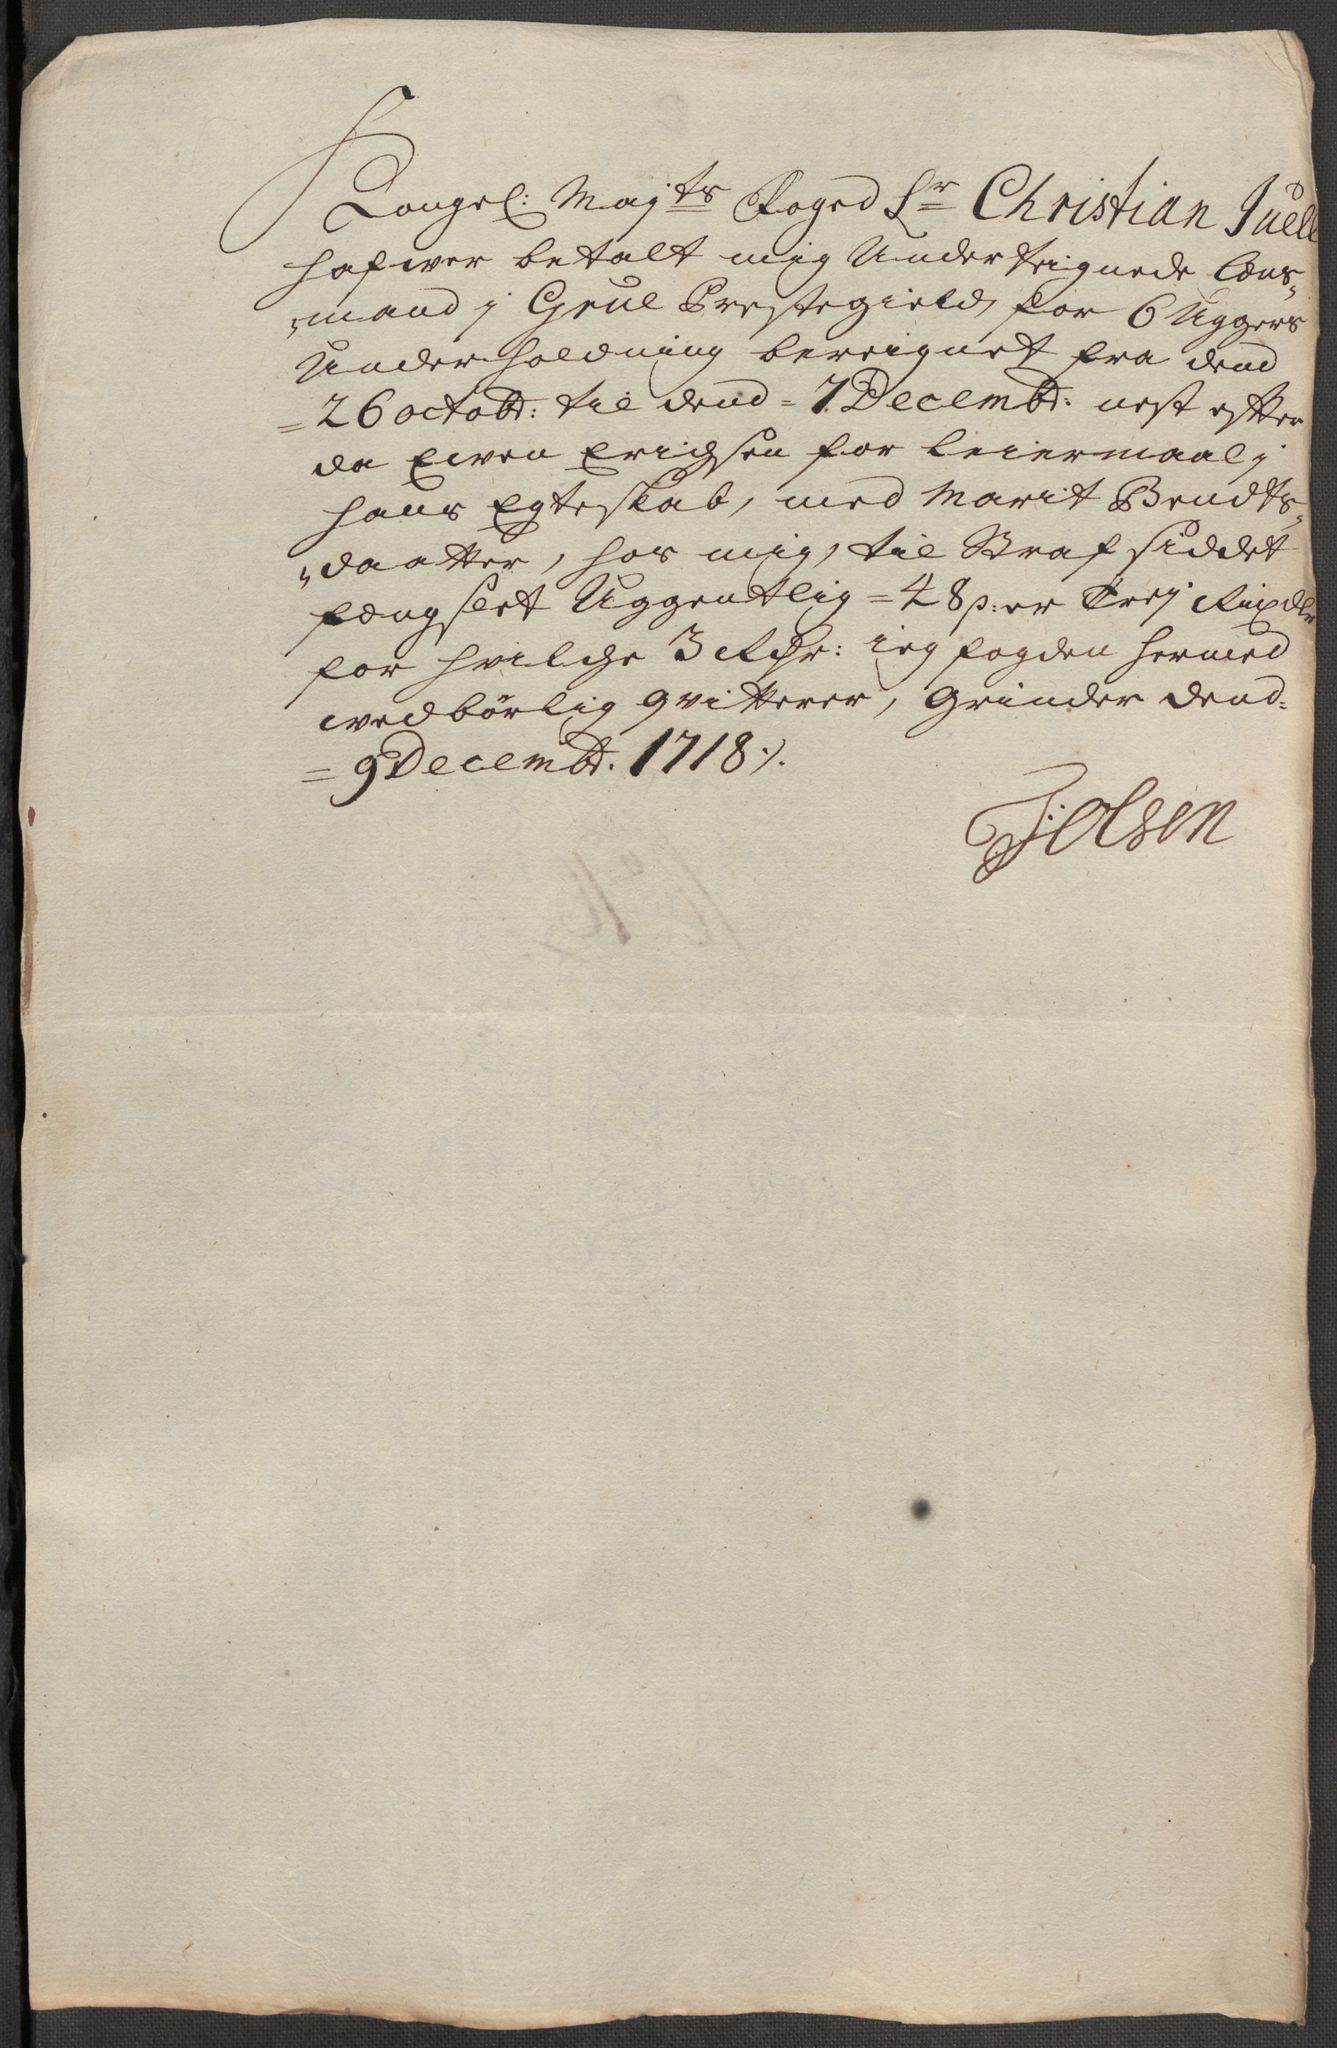 Kongel: Majts Foged Sr Christian Juell
hafwer betalt mig Underteignede Læns-
mand j Grue Prestegield, for 6 Uggers
Underholdning bereignet fra dend
26 octobr: til dend 7 Decembr: nest efter
da Ewen Erichsen for Leiermaal j
hans Egteskab, med Marit Bendts-
daatter, hos mig, til Straf siddet
fængslet Uggentlig 48 s: er Trej Rixdlr
for hvilche 3 Rdr: ieg fogden hermed
wedbørlig qvitterer, Grinder dend
9 Decembr. 1718 ./.
J: Olsen